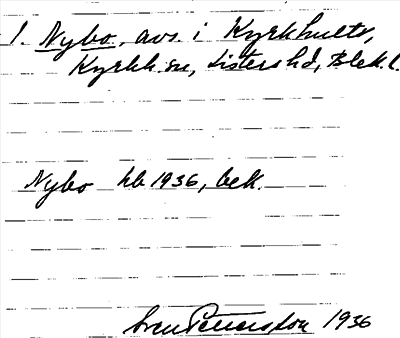 1. Nybo, avs. i Kyrkhults,
Kyrkh. sn, Listers hd, Blek. l.
Nybo hb 1936, bek.
Sven Pettersson 1936